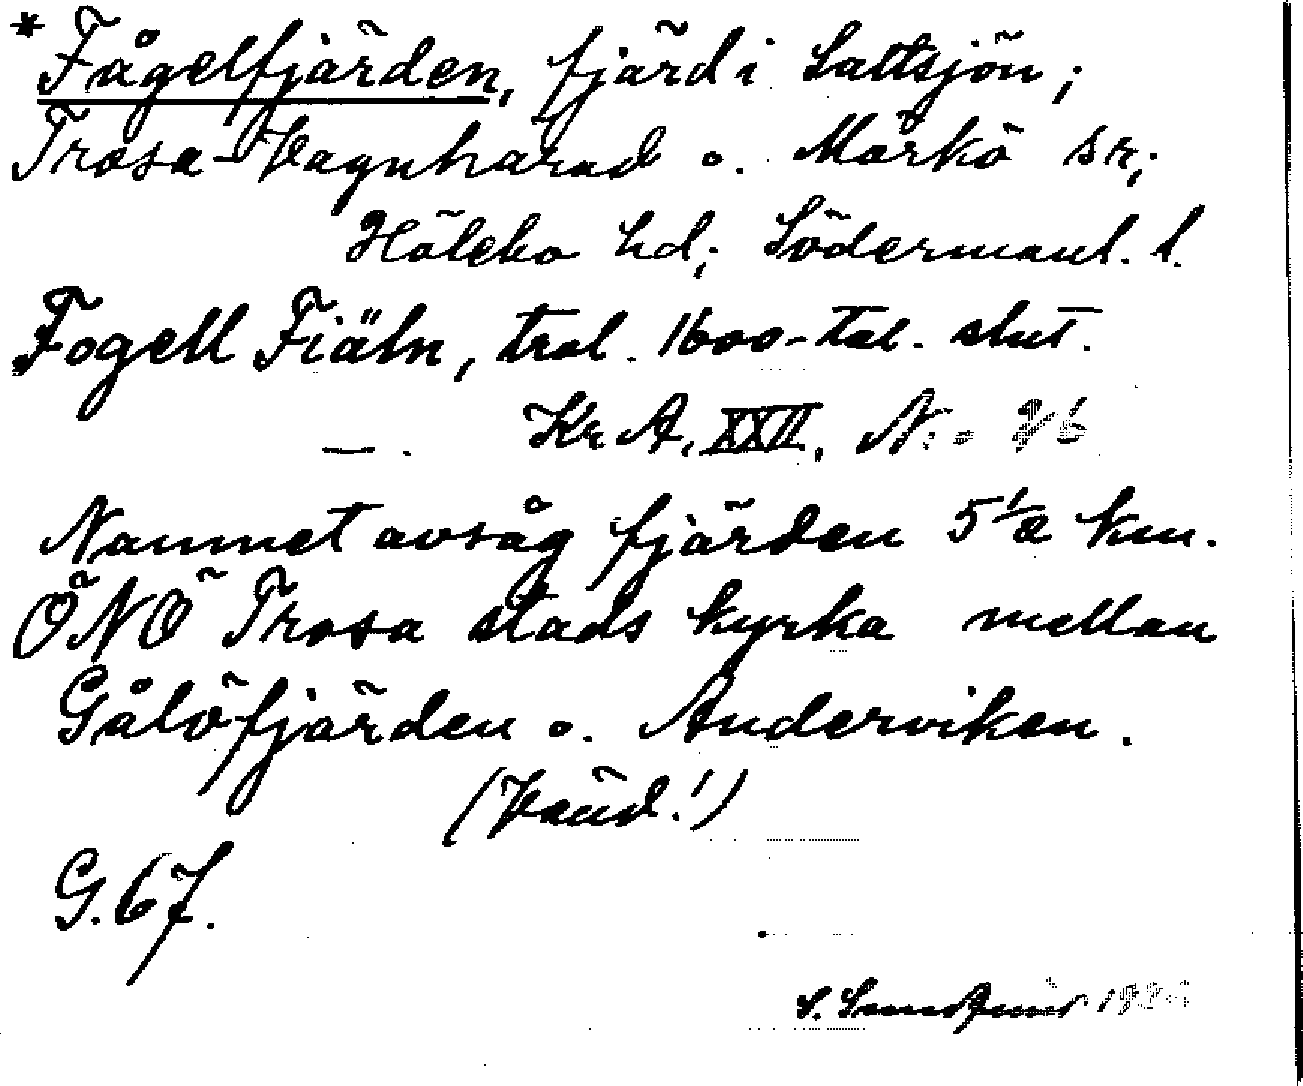 *Fågelfjärden, fjärd i Saltsjön;
Trosa-Vagnhärad o. Mörkö sr;
Hölebo hd; Södermanl. l.
Fogell Fiähn, trol. 1600-tal. slut.
— . Kr A. XXII, N:o
Namnet avsåg fjärden 5 1/2 km.
ÖNÖ Trosa stads kyrka mellan
Gålöfjärden o. Anderviken.
(Vänd!)
G. 67.
S.